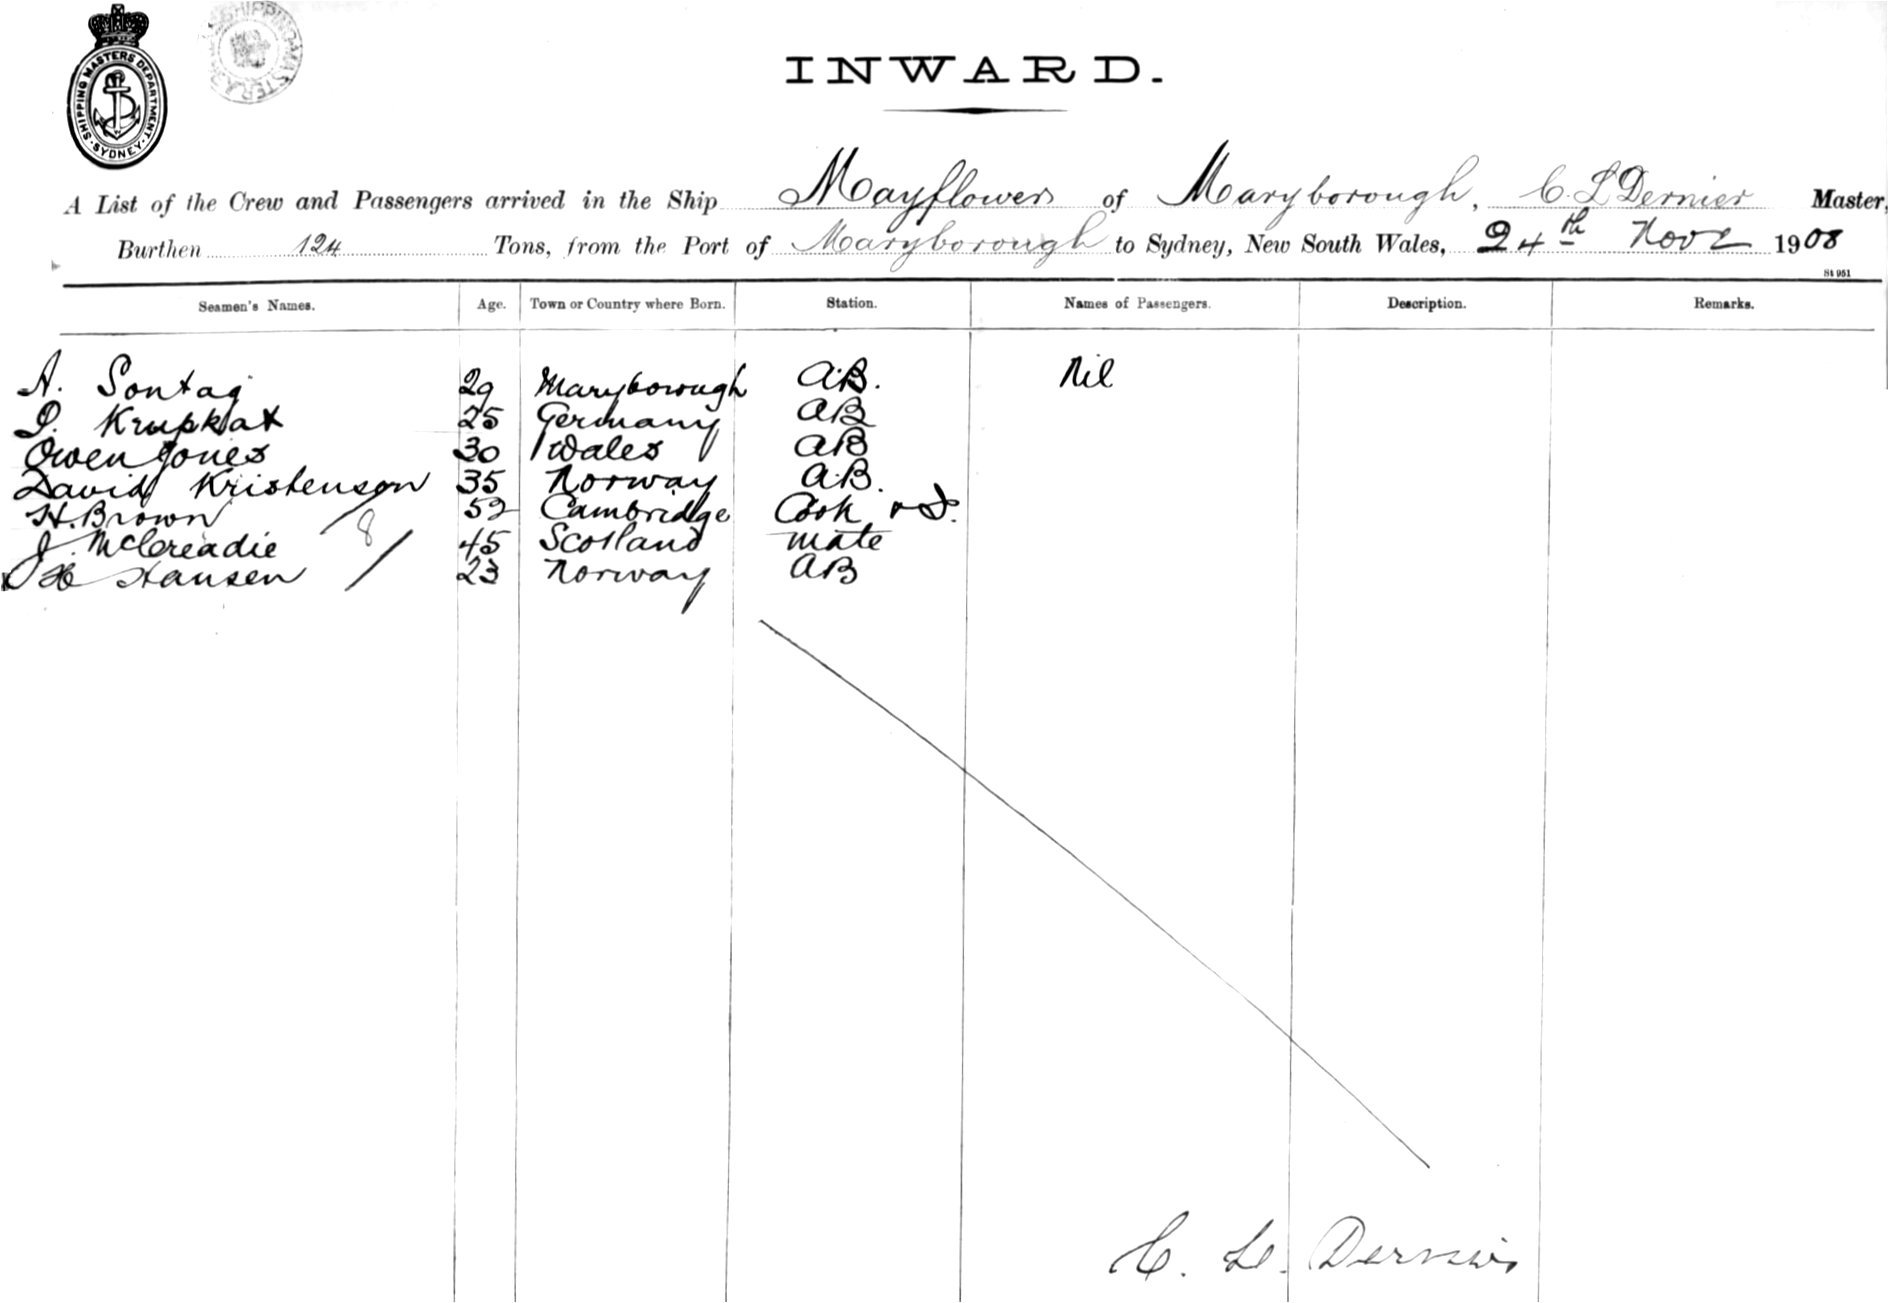 SHIPPING MASTERS DEPARTMENT. SYDNEY.
SHIPPING MASTER
INWARD.
A List of the Crew and Passengers arrived in the Ship Mayflower of Maryborough, C L Dernier Master,
Burthen 124 Tons, from the Port of Maryborough to Sydney, New South Wales, 24th Nov 1908
St 951
Seamen's Names. Age. Town or Country where Born. Station. Names of Passengers. Description. Remarks.
A. Sontag 29 Maryborough A.B. Nil
Krupkat 25 Germany AB
Owen Jones 30 Wales AB
David Kristenson 35 Norway A.B.
H. Brown 52 Cambridge Cook & S.
8
J. McCreadie 45 Scotland mate
H Hansen 23 Norway AB
C. L. Dernier